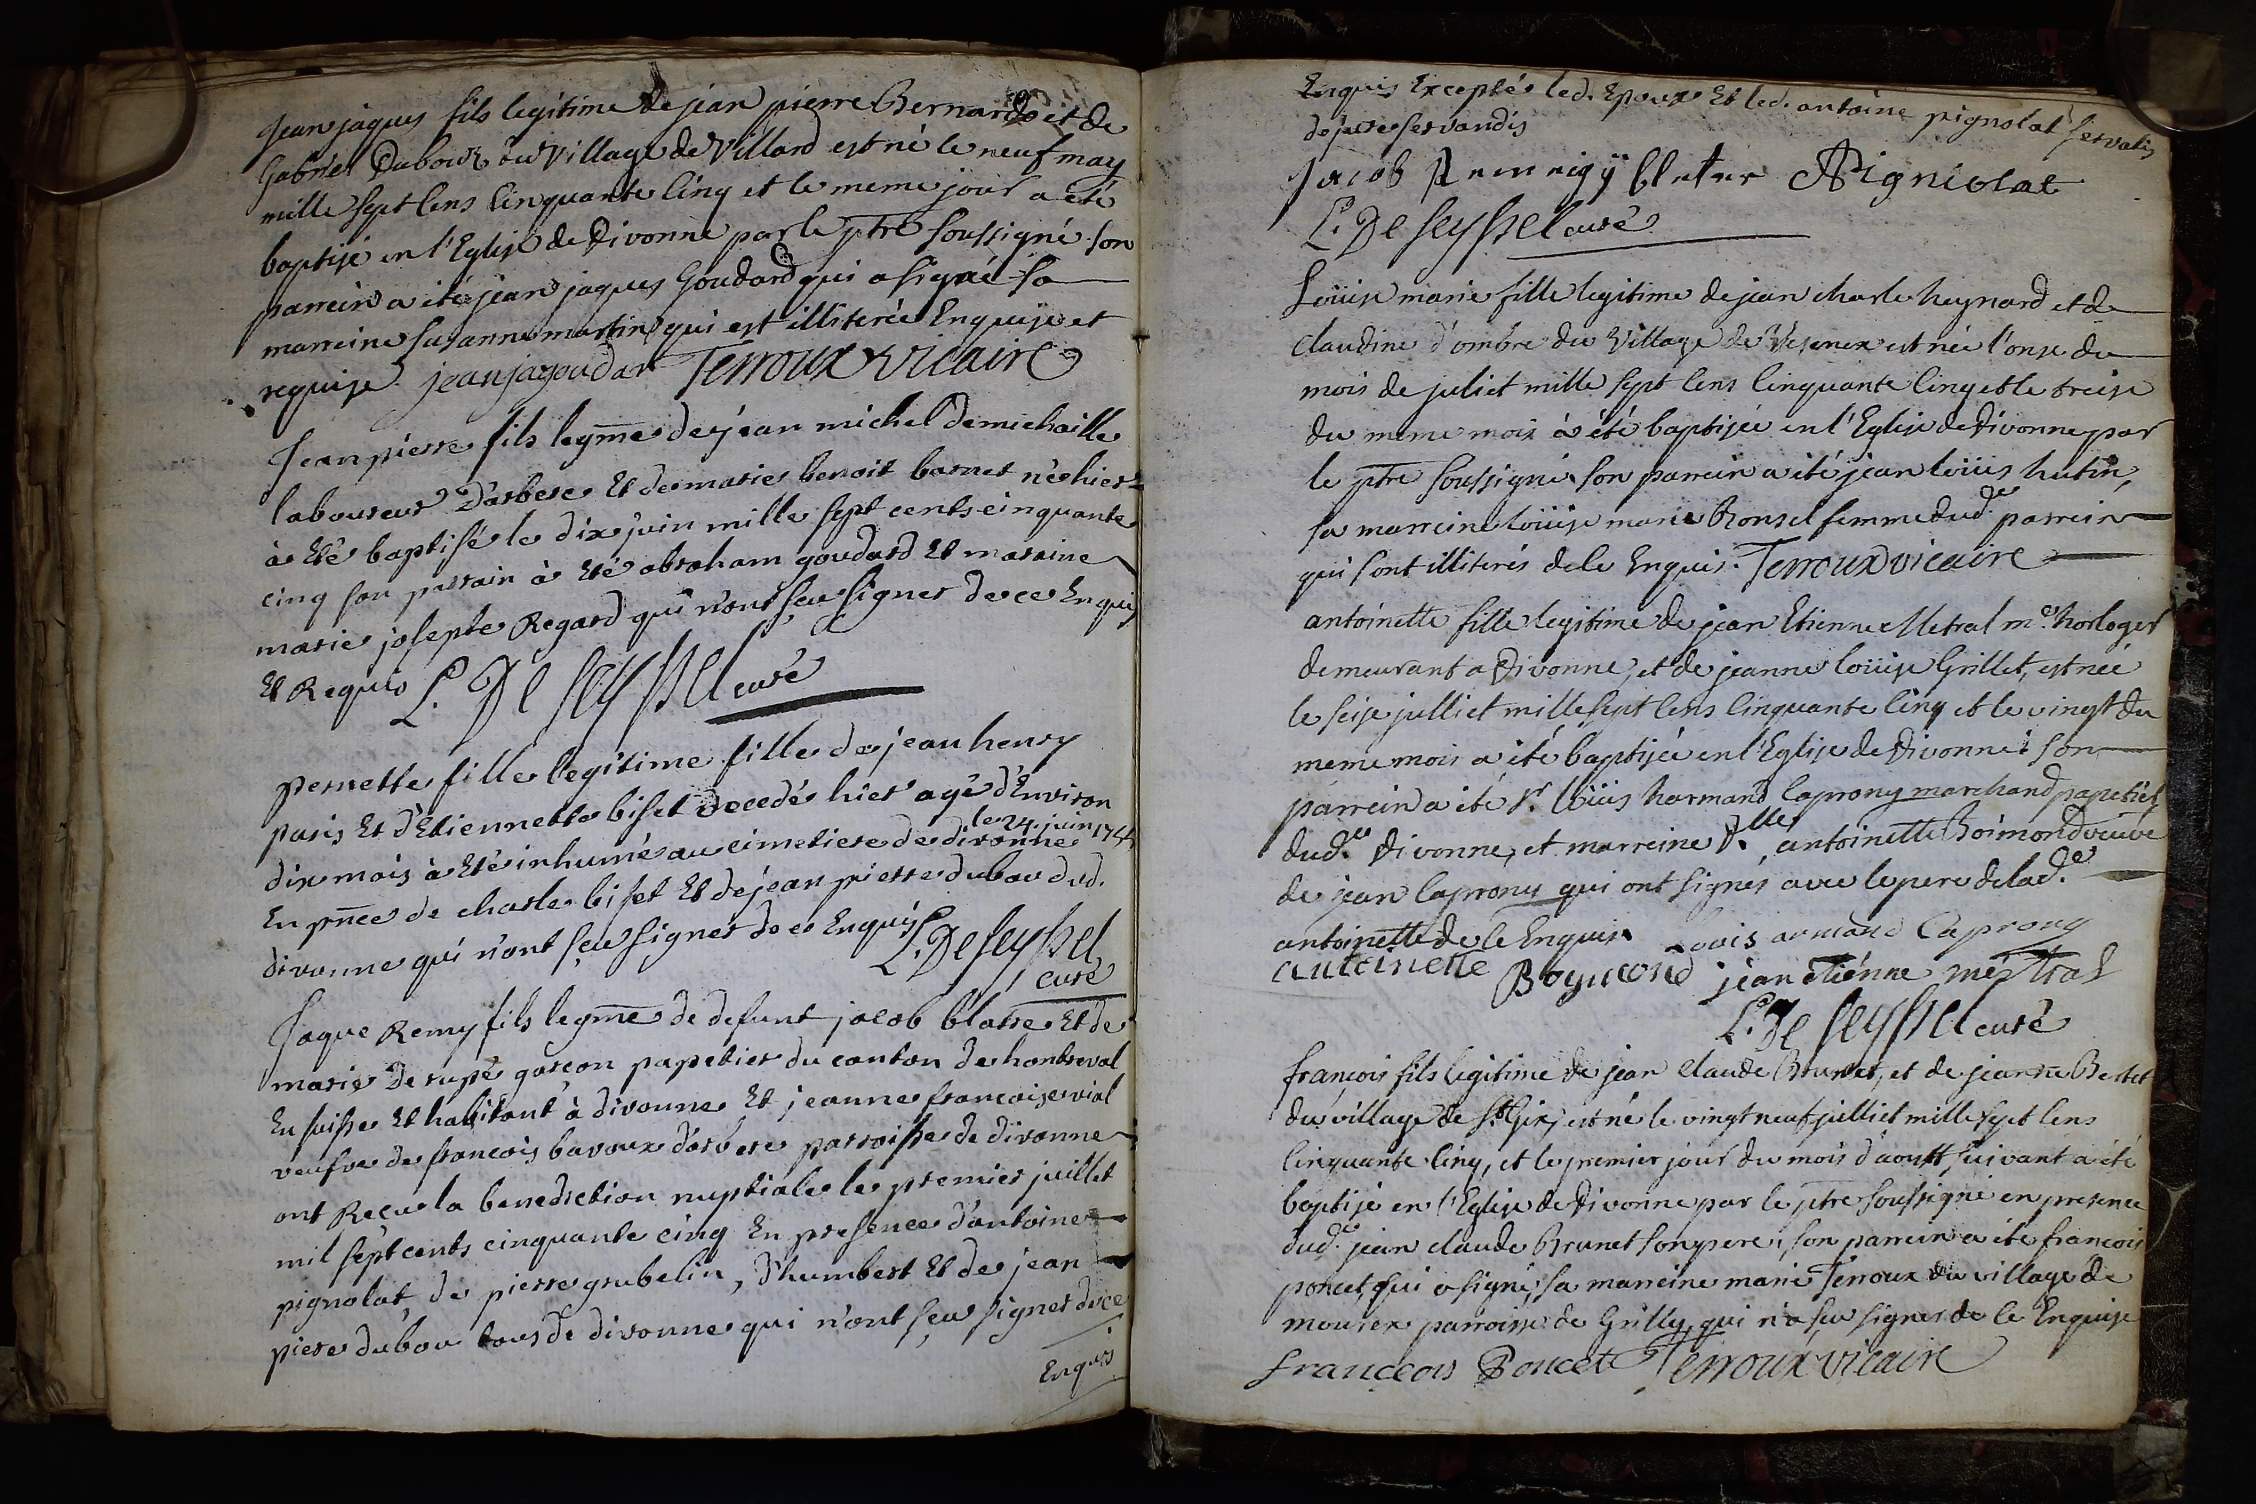 Jean jaques fils legitime de jean pierre Bernard et de
Gabriel Dubout du Village de Villard est né le neuf may
mille sept Cens Cinquante Cinq et le meme jour a été
baptisé en l'Eglise de Divonne par le ptre soussigné son
parrein a été jean jaques Goudard qui a signé sa
marreine susanne martin qui est illiterée Enquise et
requise. jean ja goudar Terroux vicaire
Jean pierre fils legme de jéan michel Demichaille
laboureur D'arbere Et de marie benoit barnet né hier
à Eté baptisé le dix juin mille sept cents cinquante
cinq son parrain à Eté abraham goudard Et marraine
marie josepte Regard qui n'ont seu signer de ce Enquis
Et Requis L. De seyssel curé
pernette fille legitime fille de jean henry
paris Et d'Etiennette biset decedé hier agé d'Environ
dix mois à Eté inhumé au cimetiere de divonne le 24 juin 1755
En pnce de charle biset Et de jean pierre dubou dud.
divonne qui n'ont sçeu signer de ce Enquis L. De seyssel
curé
Jaque Remy fils legme de defunt jacob blatre Et de
marie De rupé garcon papetier du canton de
En suisse Et habitant à divonne Et jeanne francoise vial
veufve de francois bavoux d'arbere parroisse de divonne
ont Recu la benediction nuptiale le premier juillet
mil sept cents cinquante cinq En presence d'antoine
pignolat de pierre grubelin, d'humbert Et de jean
piere dubou tous de divonne qui n'ont sçeu signer de ce
Enquis
Enquis Exceptés led. Epoux Et led. antoine pignolat servatis
de jure servandis
Jacob APigniolat
L. De seyssel curé
Loüise marie fille legitime de jean charle heynard et de
claudine d'ombre du Village de Vesenex est née l'onse du
mois de juliet mille sept Cens Cinquante Cinq et le treise
du meme mois à été baptisée en l'Eglise de Divonne par
le ptre soussigné son parrein a été jean loüis hutin,
sa marreine loüise marie Ronsel femme dud. parrein
qui sont illiterés de Ce Enquis. Terroux vicaire
antoinette fille legitime de jean Etienne Metral me horloger
demeurant a Divonne, et de jeanne loüise Grillet, est née
le seise julliet mille sept Cens Cinquante Cinq et le vingt du
meme mois a été baptisée en l'Eglise de Divonne; son
parrein a été Sr. loüis harmand Caprony marchand papetier
dud. Divonne, et marreine Dlle antoinette Boimond veuve
de jean Caprony qui ont signés avec le pere de lad.
antoinette de Ce Enquis Louis armand Caprony
antoinette Boymond jean étiénne méstral
L. De seyssel curé
francois fils legitime de jean Claude Brunet, et de jeanne Bertet
du village de St. Gix, est né le vingt neuf julliet mille sept Cens
Cinquante Cinq, et le premier jour du mois d'aoust suivant a été
baptisé en l'Eglise de Divonne par le ptre soussigné en presence
dud. jean claude Brunet son pere; son parrein a été francois
poncet, qui a signé, sa marreine marie Terroux du village de
mourex parroisse de Grilly, qui n'a sçu signer de Ce Enquise
franceois Poncet Terroux vicaire